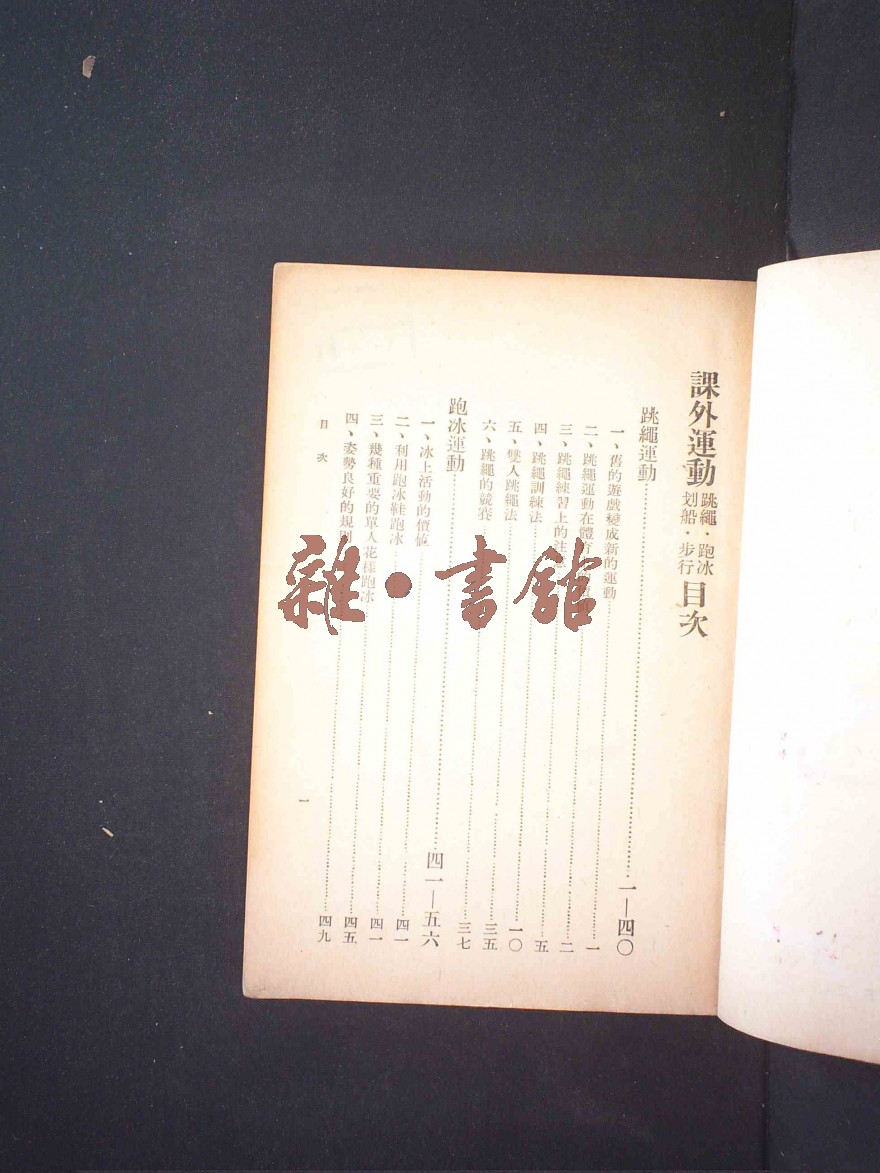 課外運動
跳繩・跑冰
划船・步行
目次
跳繩運動……一—四〇
一、舊的遊戲變成新的運動……一
二、跳繩運動在體育……二
三、跳繩練習上的注……五
四、跳繩訓練法……一〇
五、雙人跳繩法……三五
六、跳繩的競賽……三七
跑冰運動……四一—五六
一、冰上活動的價值……四一
二、利用跑冰鞋跑冰……四一
三、幾種重要的單人花樣跑冰……四五
四、姿勢良好的規則……四九
目次
一
雜・書館